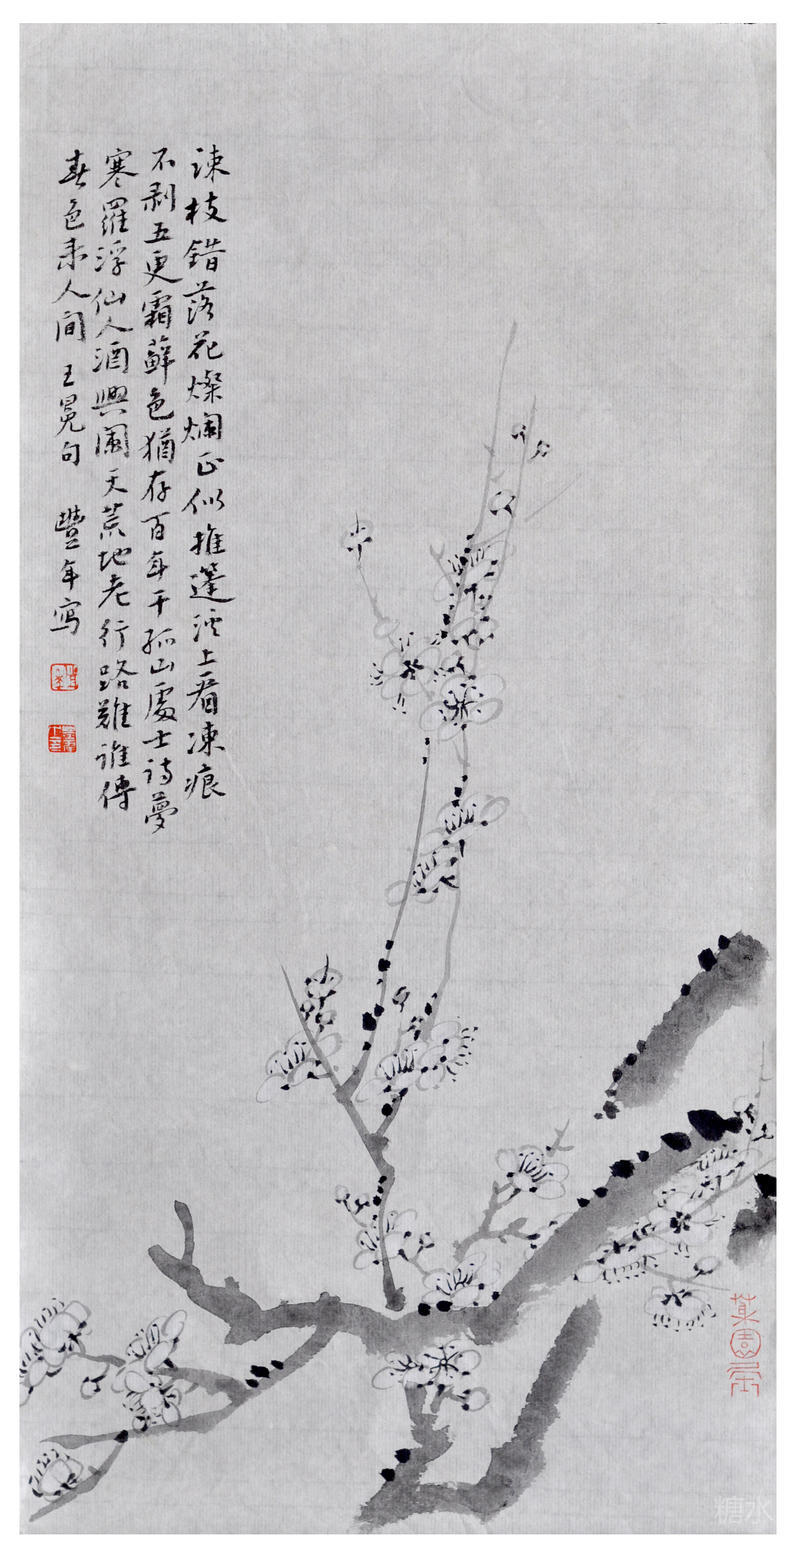 疎枝錯落花燦爛正似推篷溪上看凍痕
不剥五更霜蘚色猶存百年干孤山處士詩夢
寒羅浮仙人酒興闌天荒地老行路難誰傳
春色来人间 王冕句 豐年寫
糖水